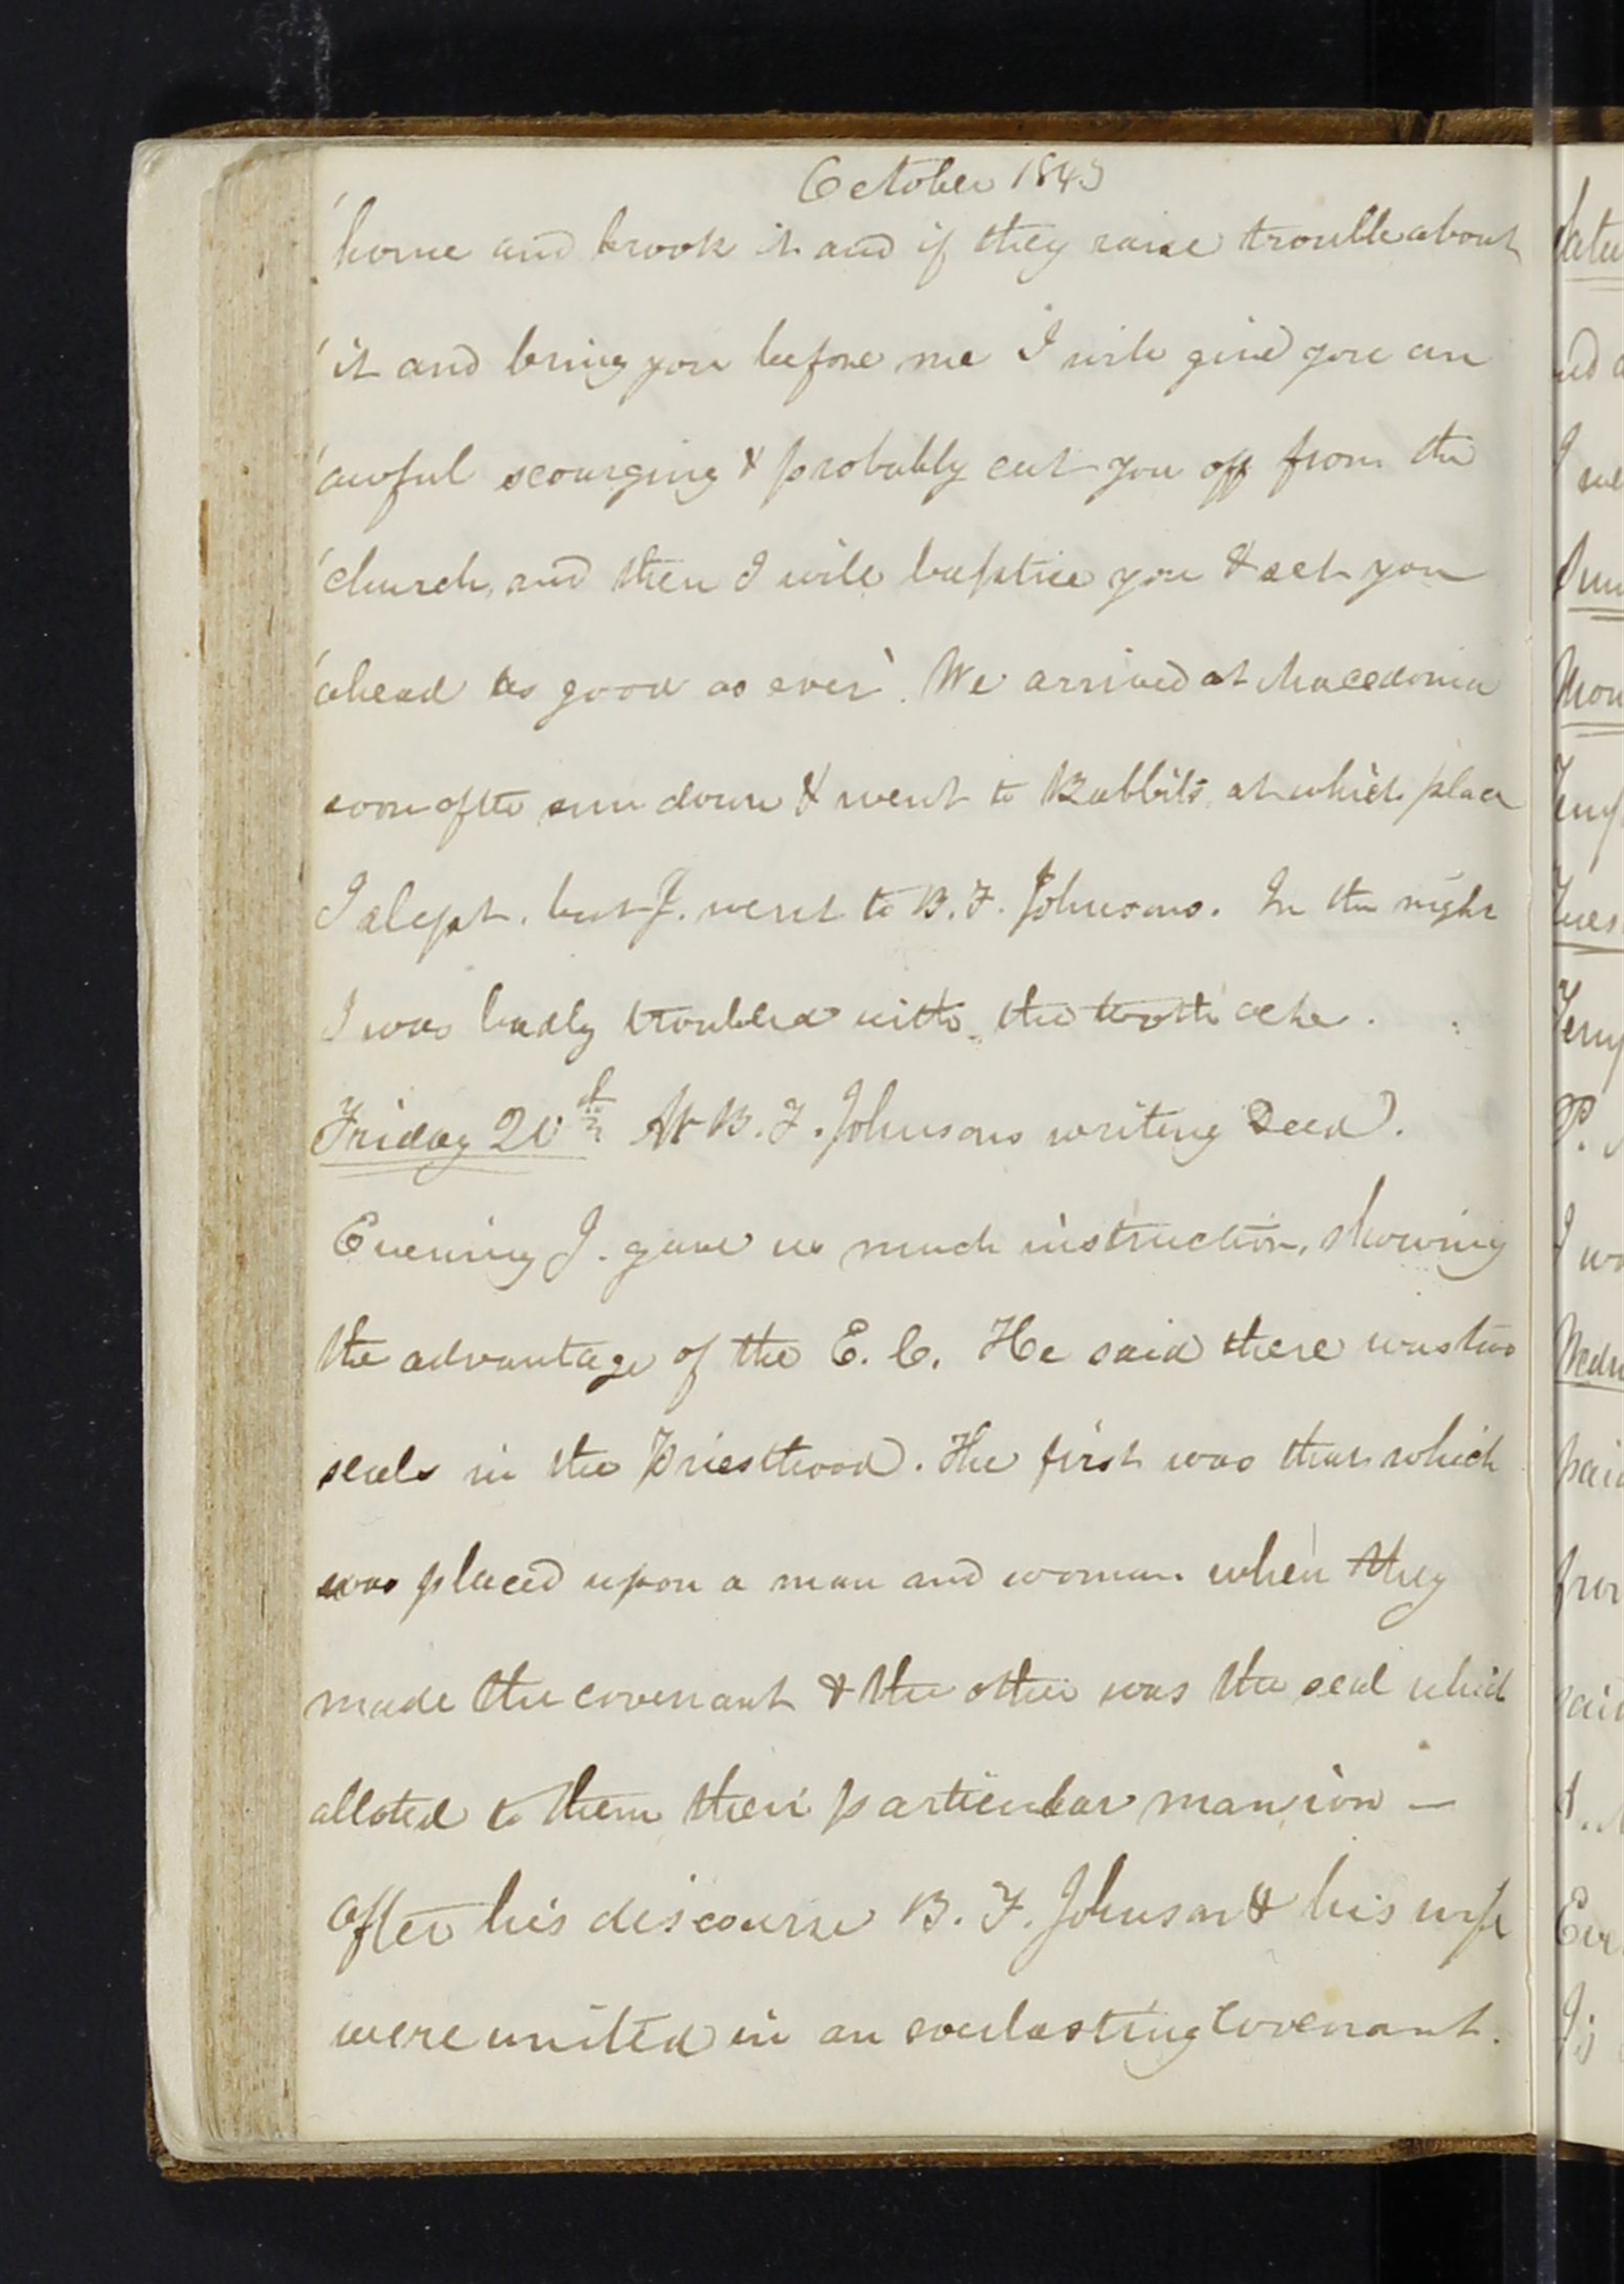 October 1843
'home and brook it and if they raise trouble about
'it and bring you before me I will give you an
'awful scourging & probably cut you off from the
'church, and then I will baptise you & set you
'ahead as good as ever'. We arrived at Macedonia
soon after sun down & went to Babbits, at which place
I slept, but J. went to B. F. Johnsons. In the night
I was badly troubled with the tooth ache.
Friday 20th At B. F. Johnsons writing Deed.
Evening J. gave us much instruction, showing
the advantage of the E. C. He said there was two
seals in the Priesthood. The first was that which
was placed upon a man and woman when they
made the covenant & the other was the seal which
alloted to them their particular mansion —
After his discourse B. F. Johnson & his wife
were united in an everlasting Covenant.